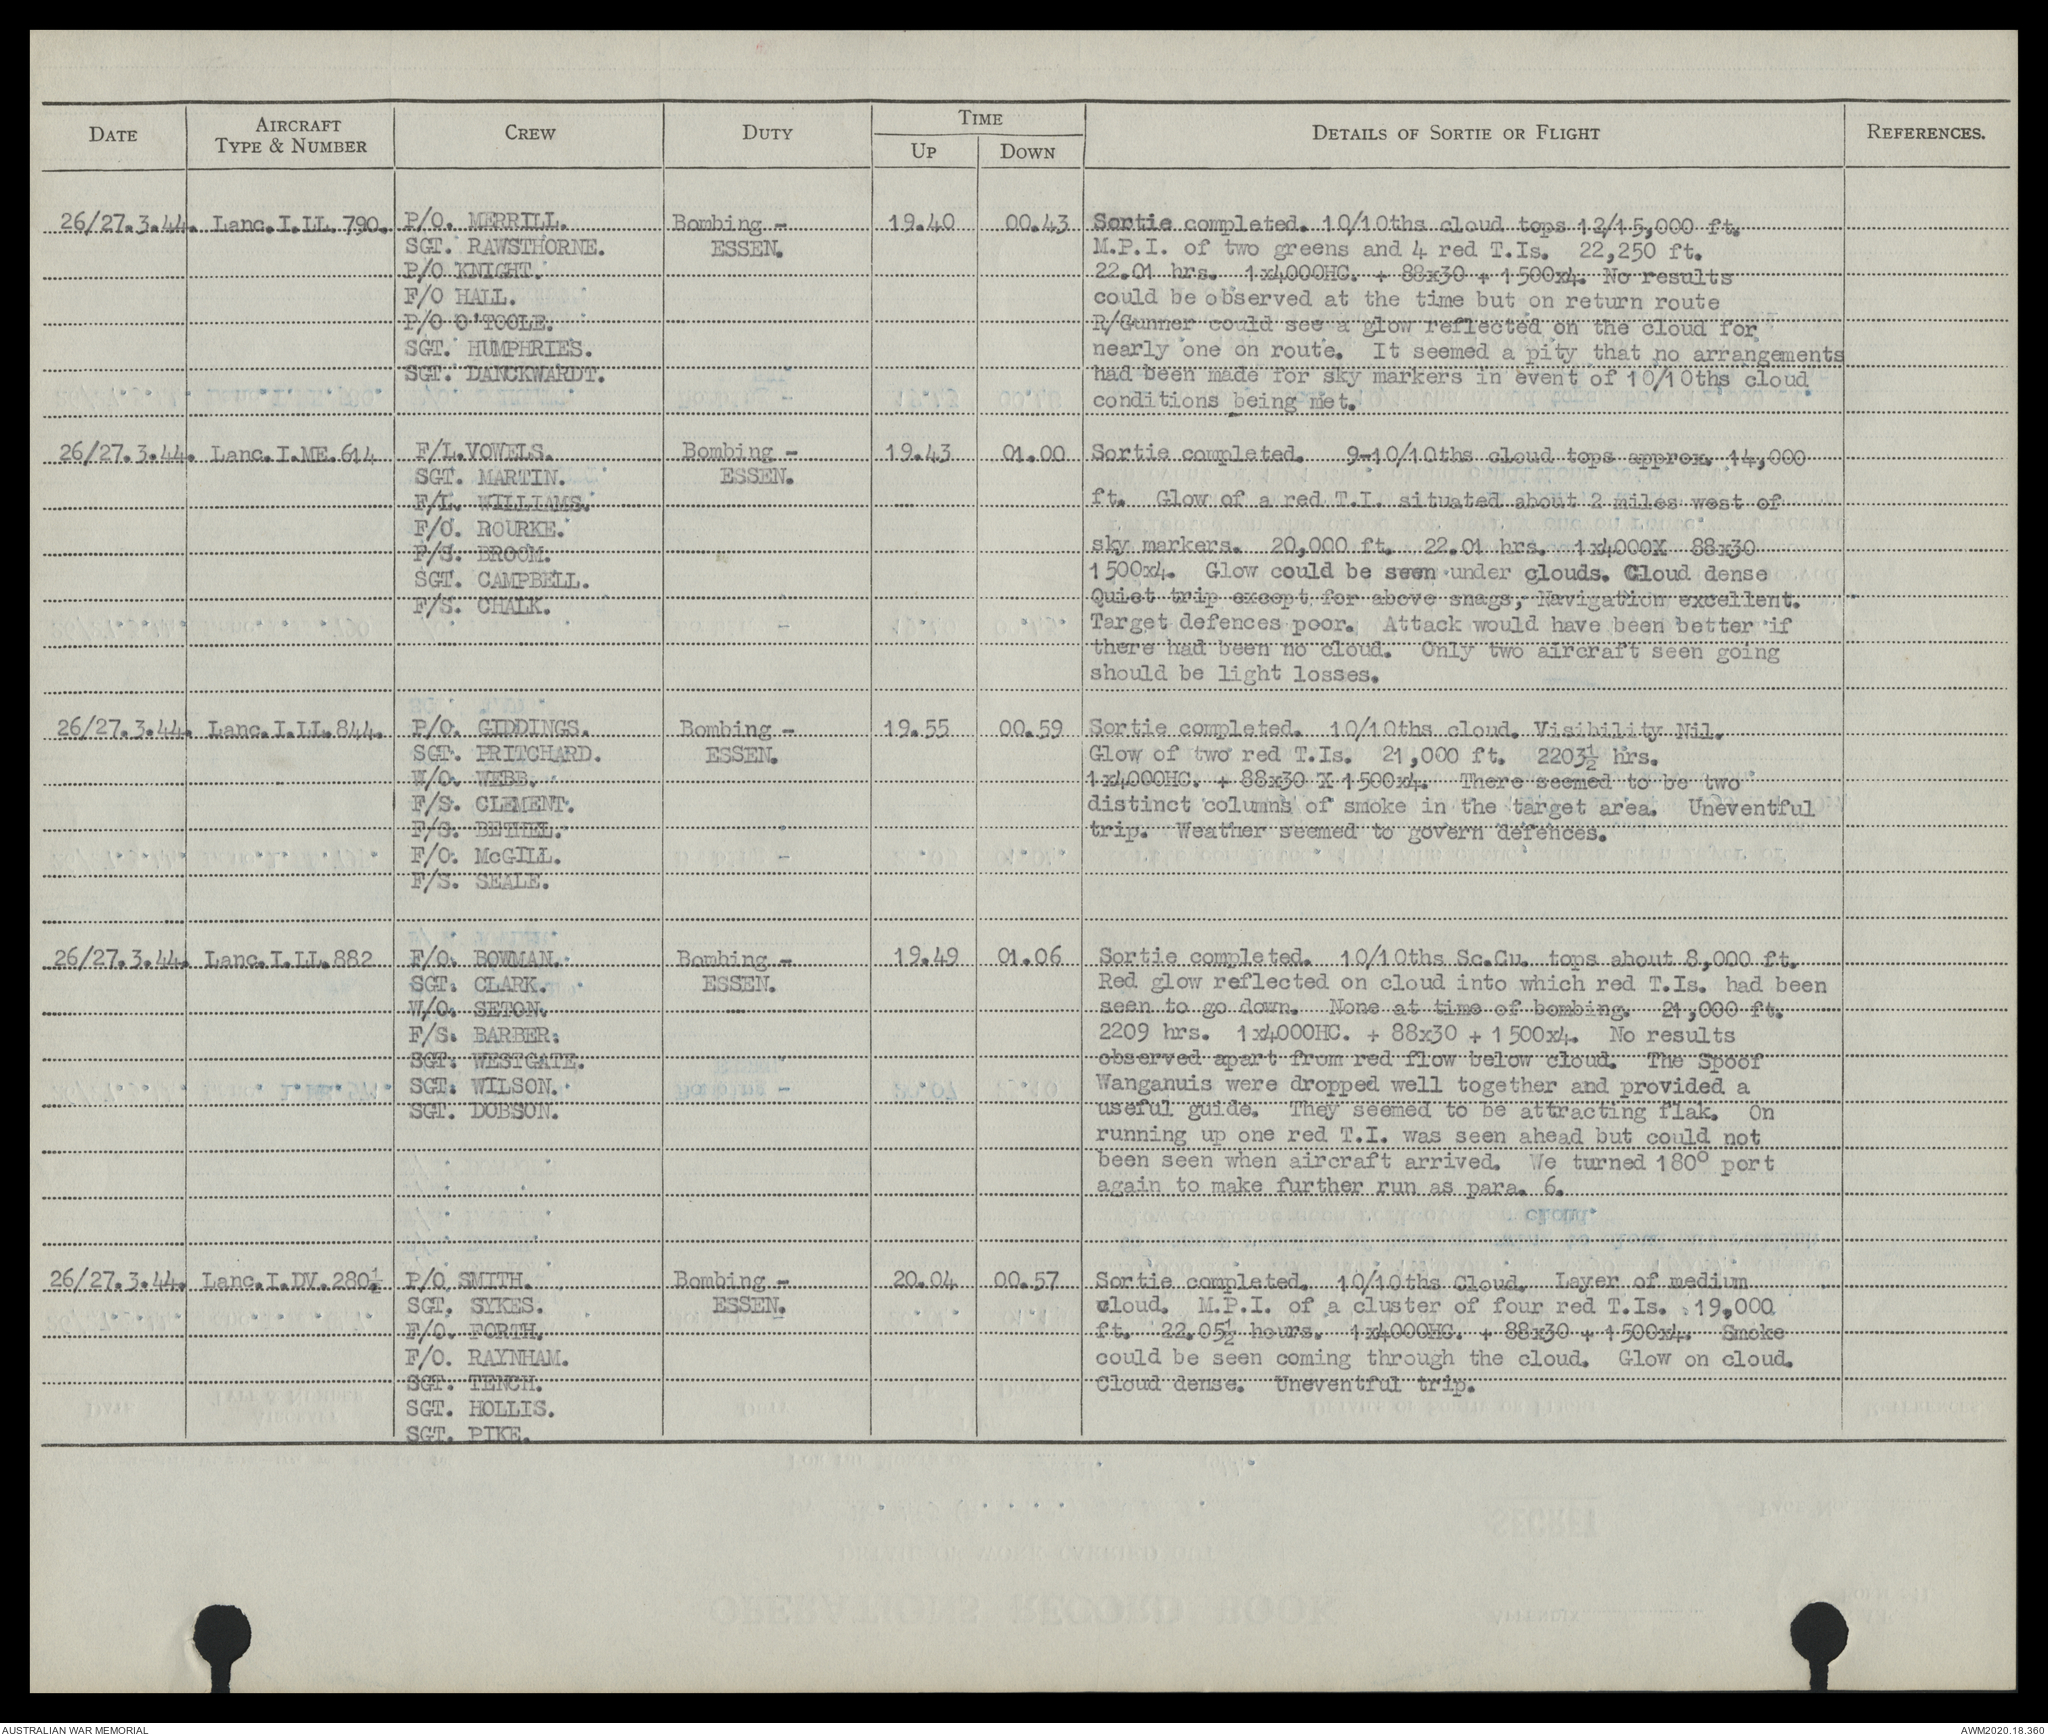 DATE
AIRCRAFT TYPE & NUMBER
CREW
DUTY
TIME
UP
DOWN
DETAILS OF SORTIE OR FLIGHT
REFERENCES.
26/27.3.44. Lanc.I.LL.790. P/O. MERRILL. Bombing - 19.40 00.43 Sortie completed. 10/10ths cloud tops 12/15,000 ft.
SGT. RAWSTHORNE. ESSEN. M.P.I. of two greens and 4 red T.Is. 22,250 ft.
P/O KNIGHT. 22.01 hrs. 1x4000HC. + 88x30 + 1500x4. No results
F/O HALL. could be observed at the time but on return route
P/O O'TOOLE. R/Gunner could see a glow reflected on the cloud for
SGT. HUMPHRIES. nearly one on route. It seemed a pity that no arrangements
SGT. DANCKWARDT. had been made for sky markers in event of 10/10ths cloud
conditions being met.
26/27.3.44. Lanc.I.ME.614 F/L.VOWELS. Bombing - 19.43 01.00 Sortie completed. 9-10/10ths cloud tops approx. 14,000
SGT. MARTIN. ESSEN.
F/L. WILLIAMS. ft. Glow of a red T.I. situated about 2 miles west of
F/O. ROURKE.
F/S. BROOM. sky markers. 20,000 ft. 22.01 hrs. 1x4000X 88x30
SGT. CAMPBELL. 1500x4. Glow could be seen under clouds. Cloud dense
F/S. CHALK. Quiet trip except for above snags, Navigation excellent.
Target defences poor. Attack would have been better if
there had been no cloud. Only two aircraft seen going
should be light losses.
26/27.3.44. Lanc.I.LL.844. P/O. GIDDINGS. Bombing - 19.55 00.59 Sortie completed. 10/10ths cloud. Visibility Nil.
SGT. PRITCHARD. ESSEN. Glow of two red T.Is. 21,000 ft. 2203½ hrs.
W/O. WEBB. 1x4000HC. + 88x30 X 1500x4. There seemed to be two
F/S. CLEMENT. distinct columns of smoke in the target area. Uneventful
F/S. BETHEL. trip. Weather seemed to govern defences.
F/O. McGILL.
F/S. SEALE.
26/27.3.44. Lanc.I.LL.882 F/O. BOWMAN. Bombing - 19.49 01.06 Sortie completed. 10/10ths Sc.Cu. tops about 8,000 ft.
SGT. CLARK. ESSEN. Red glow reflected on cloud into which red T.Is. had been
W/O. SETON. seen to go down. None at time of bombing. 21,000 ft.
F/S. BARBER. 2209 hrs. 1x4000HC. + 88x30 + 1500x4. No results
SGT. WESTGATE. observed apart from red flow below cloud. The Spoof
SGT. WILSON. Wanganuis were dropped well together and provided a
SGT. DOBSON. useful guide. They seemed to be attracting flak. On
running up one red T.I. was seen ahead but could not
been seen when aircraft arrived. We turned 180° port
again to make further run as para. 6.
26/27.3.44. Lanc.I.DV.280. P/O SMITH. Bombing - 20.04 00.57 Sortie completed. 10/10ths Cloud. Layer of medium
SGT. SYKES. ESSEN. cloud. M.P.I. of a cluster of four red T.Is. 19,000
F/O. FORTH. ft. 22.05½ hours. 1x4000HC. + 88x30 + 1500x4. Smoke
F/O. RAYNHAM. could be seen coming through the cloud. Glow on cloud.
SGT. TENCH. Cloud dense. Uneventful trip.
SGT. HOLLIS.
SGT. PIKE.
AUSTRALIAN WAR MEMORIAL
AWM2020.18.360